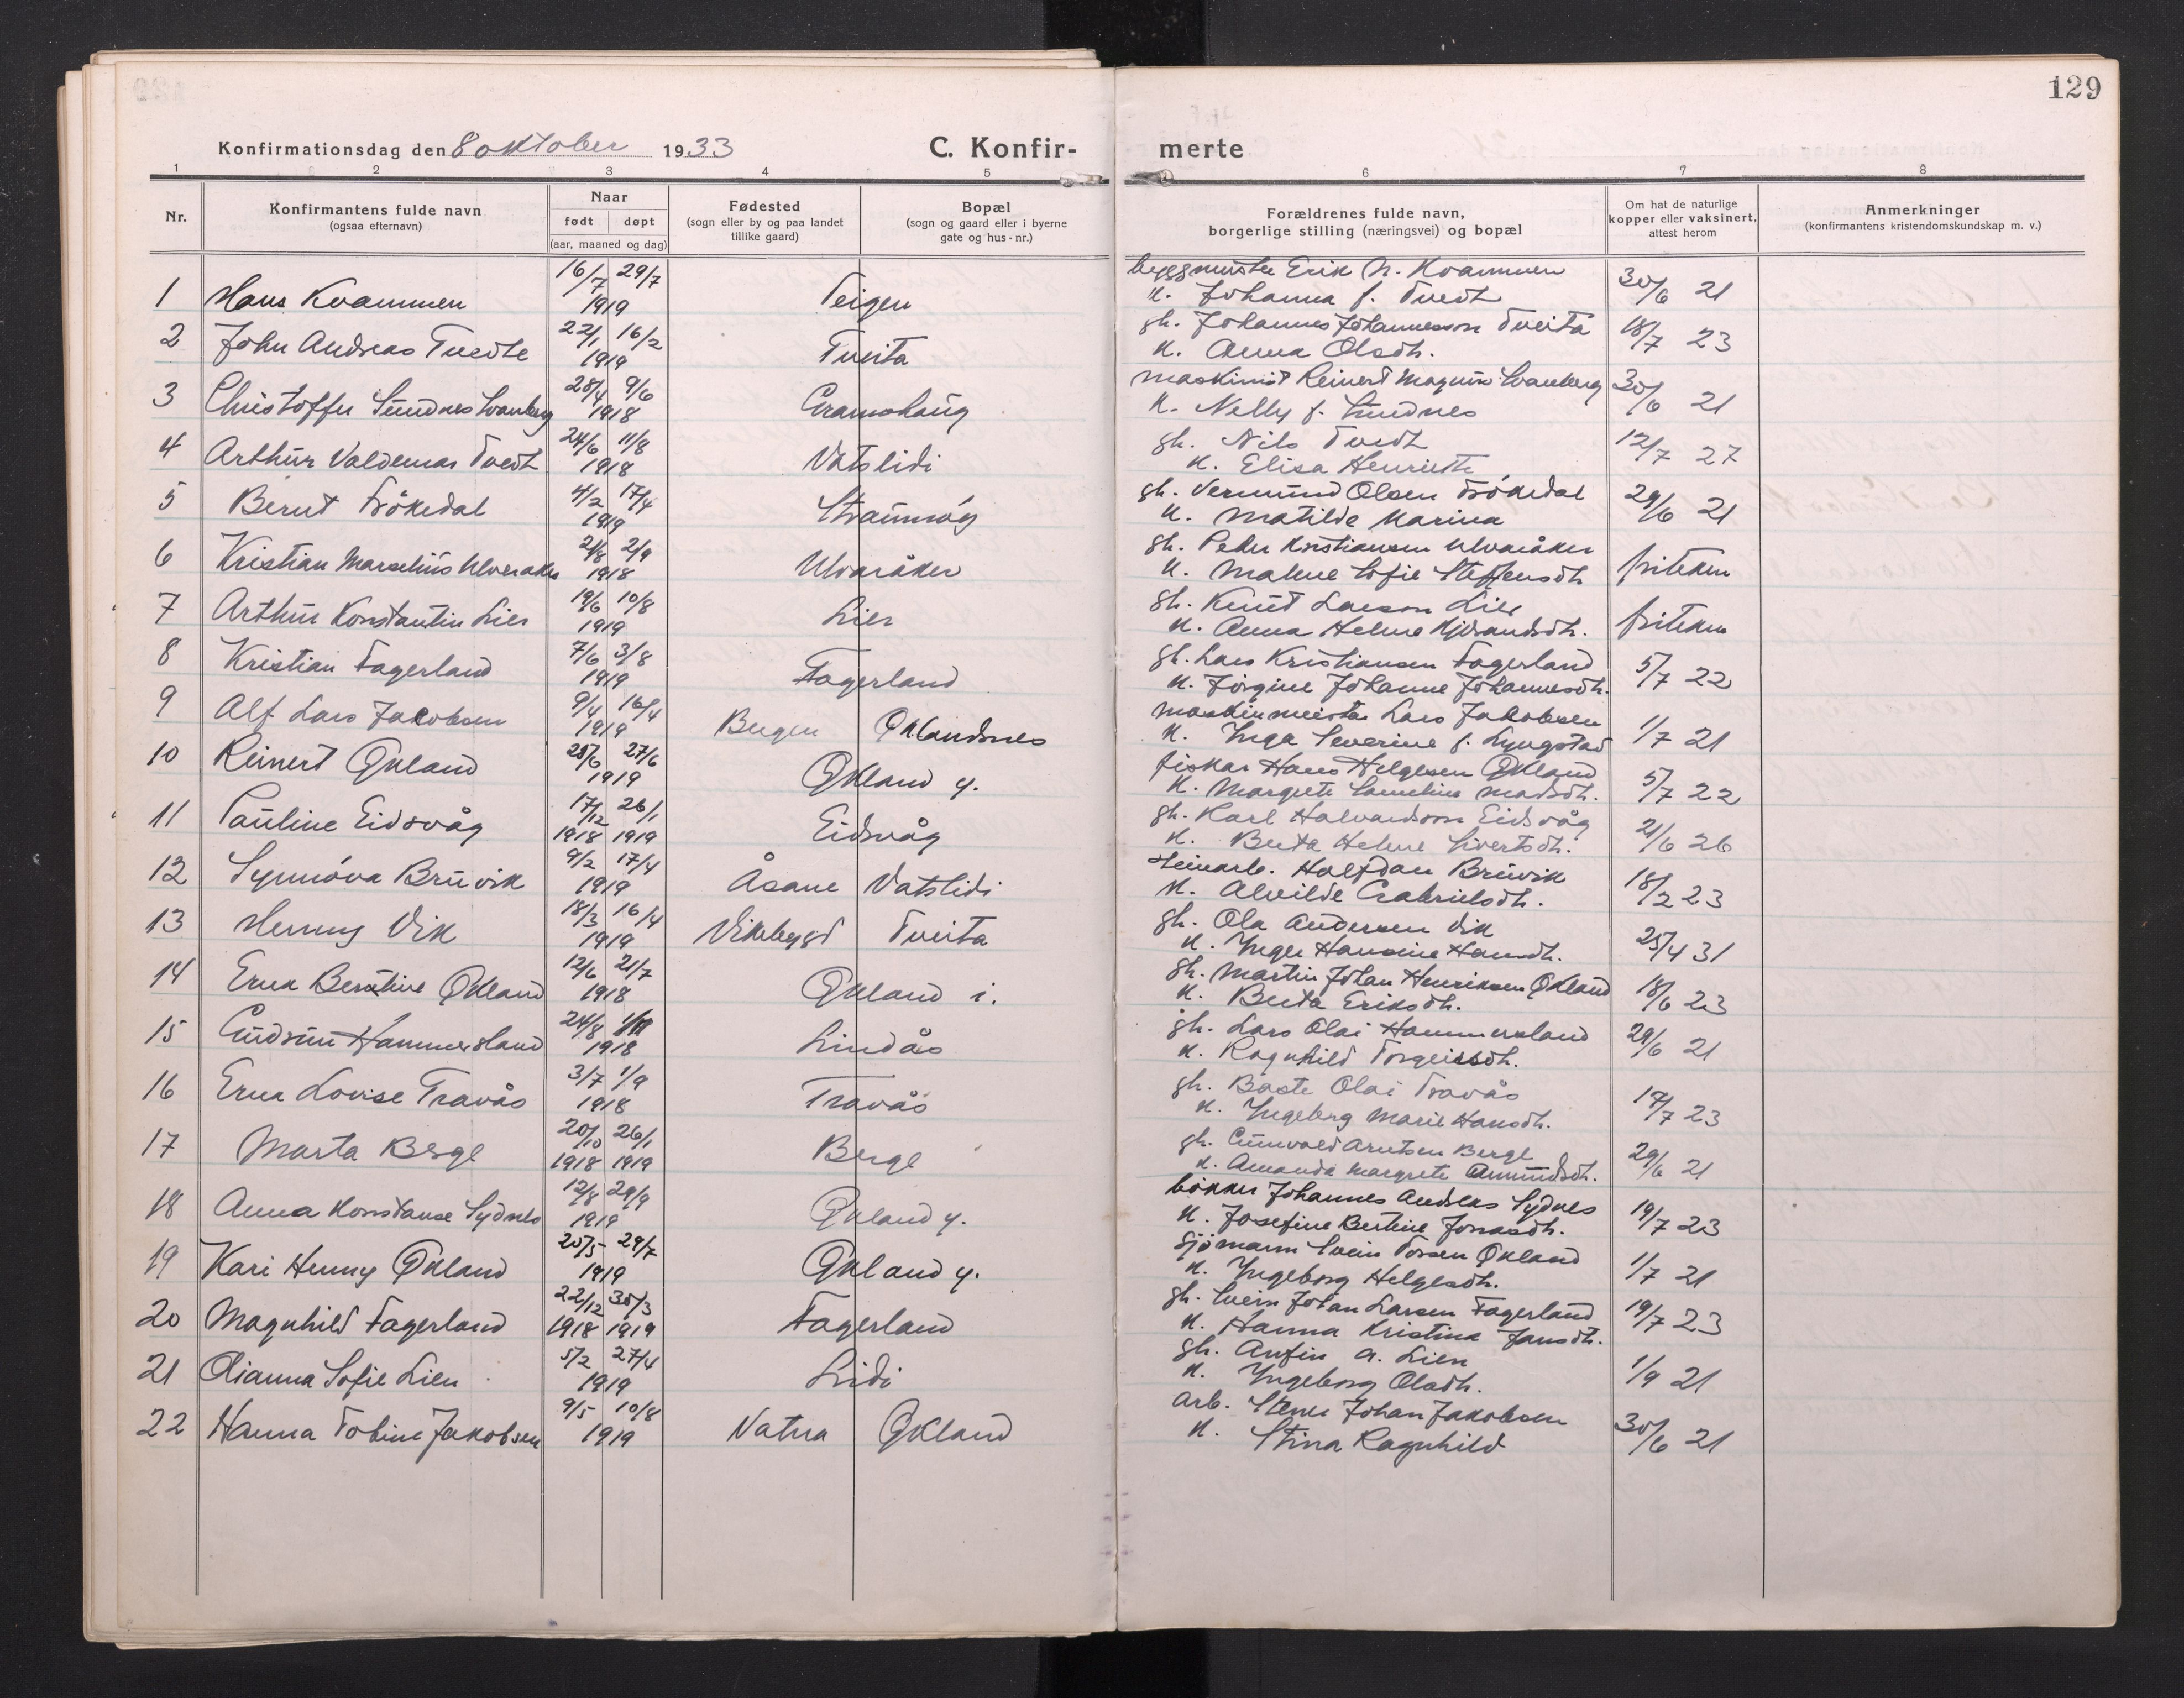 129
Konfirmationsdag den 8 oktober 1933 C. Konfir- merte
1 2 3 4 5 6 7 8
Nr.
Konfirmantens fulde navn
(ogsaa efternavn)
Naar
født døpt
(aar, maaned og dag)
Fødested
(sogn eller by og paa landet
tillike gaard)
Bopæl
(sogn og gaard eller i byerne
gate og hus-nr.)
Forældrenes fulde navn,
borgerlige stilling (næringsvei) og bopæl
Om hat de naturlige
kopper eller vaksinert,
attest herom
Anmerkninger
(konfirmantens kristendomskundskap m. v.)
16/7 29/7 byggmester Erik N. Kvammen
1 Hans Kvammen 1919 Teigen k. Johanna f. Tvedt 30/6 21
22/1 16/2 gh. Johannes Johannesson Tveita
2 John Andreas Tvedte 1919 Tveita k. Anna Olsdh. 18/7 23
28/4 9/6 maskinist Reinert Magnus Svanberg
3 Christoffer Sundnes Svanberg 1918 Gramshaug k. Nelly f. Sundnes 30/6 21
24/6 11/8 gh. Nils Tvedt
4 Arthur Valdemar Tvedt 1918 Vatslidi k. Elisa Henriette 12/7 27
4/2 17/4 gh. Vermund Olsen Frökedal
5 Bernt Frökedal 1919 Straumsöy k. Matilde Marina 29/6 21
2/8 2/9 gh. Peder Kristiansen Ulvaråker
6 Kristian Marselius Ulveraker 1918 Ulvaråker k. Malene Sofie Steffensdh friteken
19/6 10/8 gh. Knut Larsen Lier
7 Arthur Konstantin Lier 1919 Lier k. Anna Helene friteken
7/6 3/8 gh. Lars Kristiansen Fagerland
8 Kristian Fagerland 1919 Fagerland k. Jörgine Johanne Johannesdh. 5/7 22
9/4 16/4 maskinmeister Lars Jakobsen
9 Alf Lars Jakobsen 1919 Bergen Öklandsnes k. Inga Severine f. Lyngstad 1/7 21
25/6 27/6 fiskar Hans Helgesen Ökland
10 Reinert Ökland 1919 Ökland y. k. Margrete Samuline Madsdh. 5/7 22
17/12 26/1 gh. Karl Halvardson Eidsvåg
11 Pauline Eidsvåg 1918 1919 Eidsvåg k. Berta Helene Sivertsdh. 21/6 26
9/2 17/4 steinarb. Halfdan Bruvik
12 Synnöva Bruvik 1919 Åsane Vatslidi k. Alvilde Gabrielsdh. 18/2 23
18/3 16/4 gh. Ola Andersen Vik
13 Henny Vik 1919 Vikebygd Tveita k. Inger Hansine Hansdh. 25/4 31
12/6 21/7 gh. Martin Johan Henriksen Ökland
14 Erna Bertine Ökland 1918 Ökland i. k. Berta Eriksdh. 18/6 23
24/8 gh. Lars Olai Hammersland
15 Gudrun Hammersland 1918 Lindås k. Ragnhild Torgeirsdh. 29/6 21
3/7 1/9 gh. Baste Olai Travås
16 Erna Lovise Travås 1918 Travås k. Ingeborg Marie Hansdh. 19/7 23
20/10 26/1 gh. Gunvald Arntsen Berge
17 Marta Berge 1918 1919 Berge k. Amanda Margrete Amundsdh. 29/6 21
12/8 29/9 bökker Johannes Andreas Sydnes
18 Anna Konstanse Sydnes 1919 Ökland y. k. Josefine Bertine Jonasdh. 19/7 23
25/5 29/7 sjömann Svein Torsen Ökland
19 Kari Henny Ökland 1919 Ökland y. k. Ingeborg Helgesdh. 1/7 21
22/12 30/3 gh. Svein Johan Larsen Fagerland
20 Magnhild Fagerland 1918 1919 Fagerland k. Hanna Kristina Jansdh. 19/7 23
5/2 27/4 gh. Anfin A. Lien
21 Dianna Sofie Lien 1919 Lidi k. Ingeborg Olsdh. 1/9 21
9/5 10/8 arb. Stener Johan Jakobsen
22 Hanna Tobine Jakobsen 1919 Vatna Ökland k. Stina Ragnhild 30/6 21